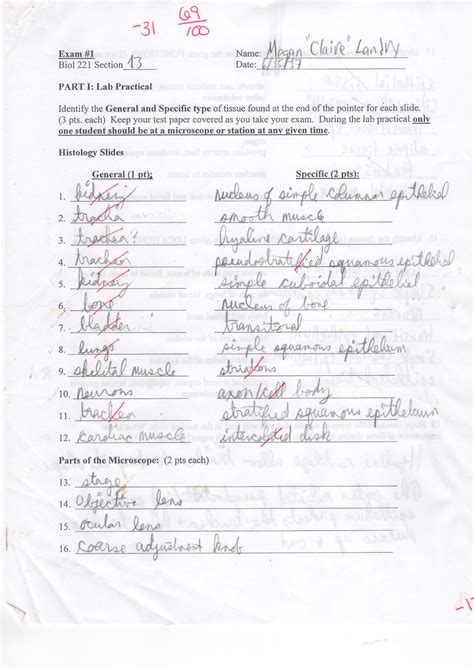 -31 69/100
Exam #1 Name: Megan "Claire" Landry
Biol 221 Section 13 Date: 6/15/37
PART I: Lab Practical
Identify the General and Specific type of tissue found at the end of the pointer for each slide.
(3 pts. each) Keep your test paper covered as you take your exam. During the lab practical only
one student should be at a microscope or station at any given time.
Histology Slides
General (1 pt); Specific (2 pts):
1. kidney nucleus of simple columnar epithelial
2. tracha smooth muscle
3. trachea? hyaline cartilage
4. trachea pseudostratified squamous epithelial
5. kidney simple cuboidal epithelial
6. bone nucleus of bone
7. bladder transitoral
8. lungs simple squamous epithelum
9. skeletal muscle striations
10. neurons axon/cell body
11. trachea stratified squamous epithelaum
12. cardiac muscle intercalated disk
Parts of the Microscope: (2 pts each)
13. stage
14. objective lens
15. ocular lens
16. coarse adjustment knob